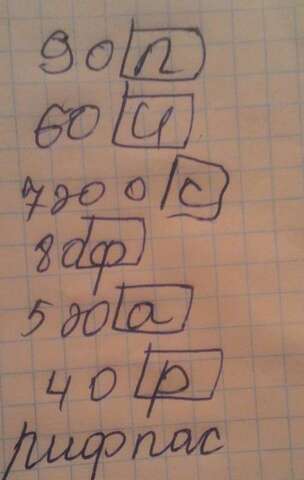 90 п
60 и
7200 с
80 ф
520 а
40 р
рифпас